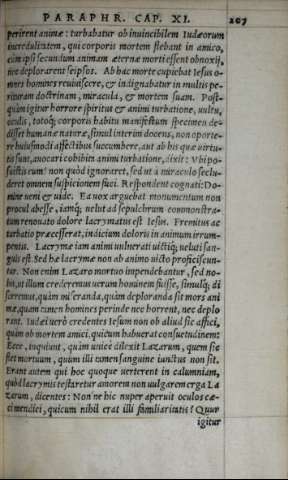 PARAPHR. CAP. XI. 207
perirent animæ: turbabatur ob inuincibilem Iudæorum
incredulitatem, qui corporis mortem flebant in amico,
cum ipsi secundum animam æternæ morti essent obnoxij,
nec deplorarent seipsos. Ab hac morte cupiebat Iesus o-
mnes homines reuiuiscere, & indignabatur in multis pe-
rituram doctrinam, miracula, & mortem suam. Post-
quàm igitur horrore spiritus & animi turbatione, uultu,
oculis, totoq; corporis habitu manifestum specimen de-
disset humanæ naturæ, simul interim docens, non oporte-
re huiusmodi affectibus succumbere, aut ab his quæ uirtu-
tis sunt, auocari cohibita animi turbatione, dixit: Vbi po-
suistis eum? non quòd ignoraret, sed ut à miraculo seclu-
deret omnem suspicionem fuci. Respondent cognati: Do-
mine ueni & uide. Ea uox arguebat monumentum non
procul abesse, iamq; uelut ad sepulchrum commonstra-
tum renouato dolore lacrymatus est Iesus. Fremitus ac
turbatio præcesserat, indicium doloris in animum irrum-
pentis. Lacrymæ iam animi uulnerati uictiq; uelut san-
guis est. Sed hæ lacrymæ non ab animo uicto proficiscun-
tur. Non enim Lazaro mortuo impendebantur, sed no-
bis, ut illum crederemus uerum hominem fuisse, simulq; di
sceremus, quàm miseranda, quàm deploranda sit mors ani
mæ, quam tamen homines perinde nec horrent, nec deplo
rant. Iudæi uerò credentes Iesum non ob aliud sic affici,
quàm ob mortem amici, quicum habuerat consuetudinem:
Ecce, inquiunt, quàm unicè dilexit Lazarum, quem sic
flet mortuum, quum illi tamen sanguine iunctus non sit.
Erant autem qui hoc quoque uerterent in calumniam,
quòd lacrymis testaretur amorem non uulgarem erga La
zarum, dicentes: Non ne hic nuper aperuit oculos cæ-
ci mendici, quicum nihil erat illi familiaritatis? Quur
igitur